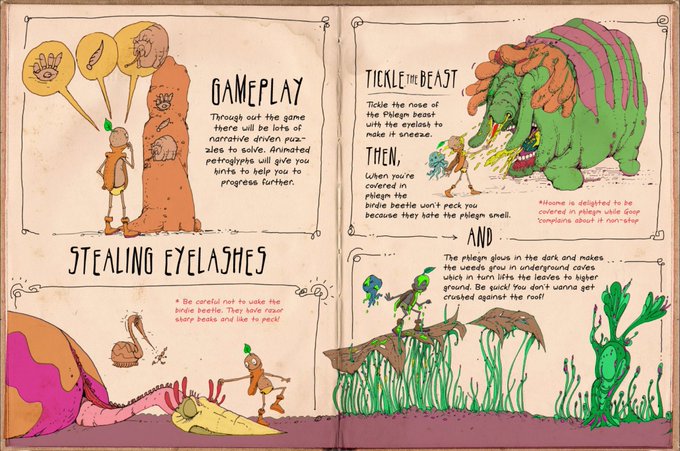 GAMEPLAY
Through out the game
there will be lots of
narrative driven puz-
zles to solve. Animated
petroglyphs will give you
hints to help you to
progress further.
STEALING EYELASHES
* Be careful not to wake the
birdie beetle. They have razor
sharp beaks and like to peck!
TICKLE THE BEAST
Tickle the nose of
the Phlegm beast
with the eyelash to
make it sneeze.
THEN,
When you're
covered in
phlegm the
birdie beetle won't peck you
because they hate the phlegm smell.
*Hoome is delighted to be
covered in phlegm while Goop
complains about it non-stop
AND
The phlegm glows in the dark and makes
the weeds grow in underground caves
which in turn lifts the leaves to higher
ground. Be quick! You don't wanna get
crushed against the roof!